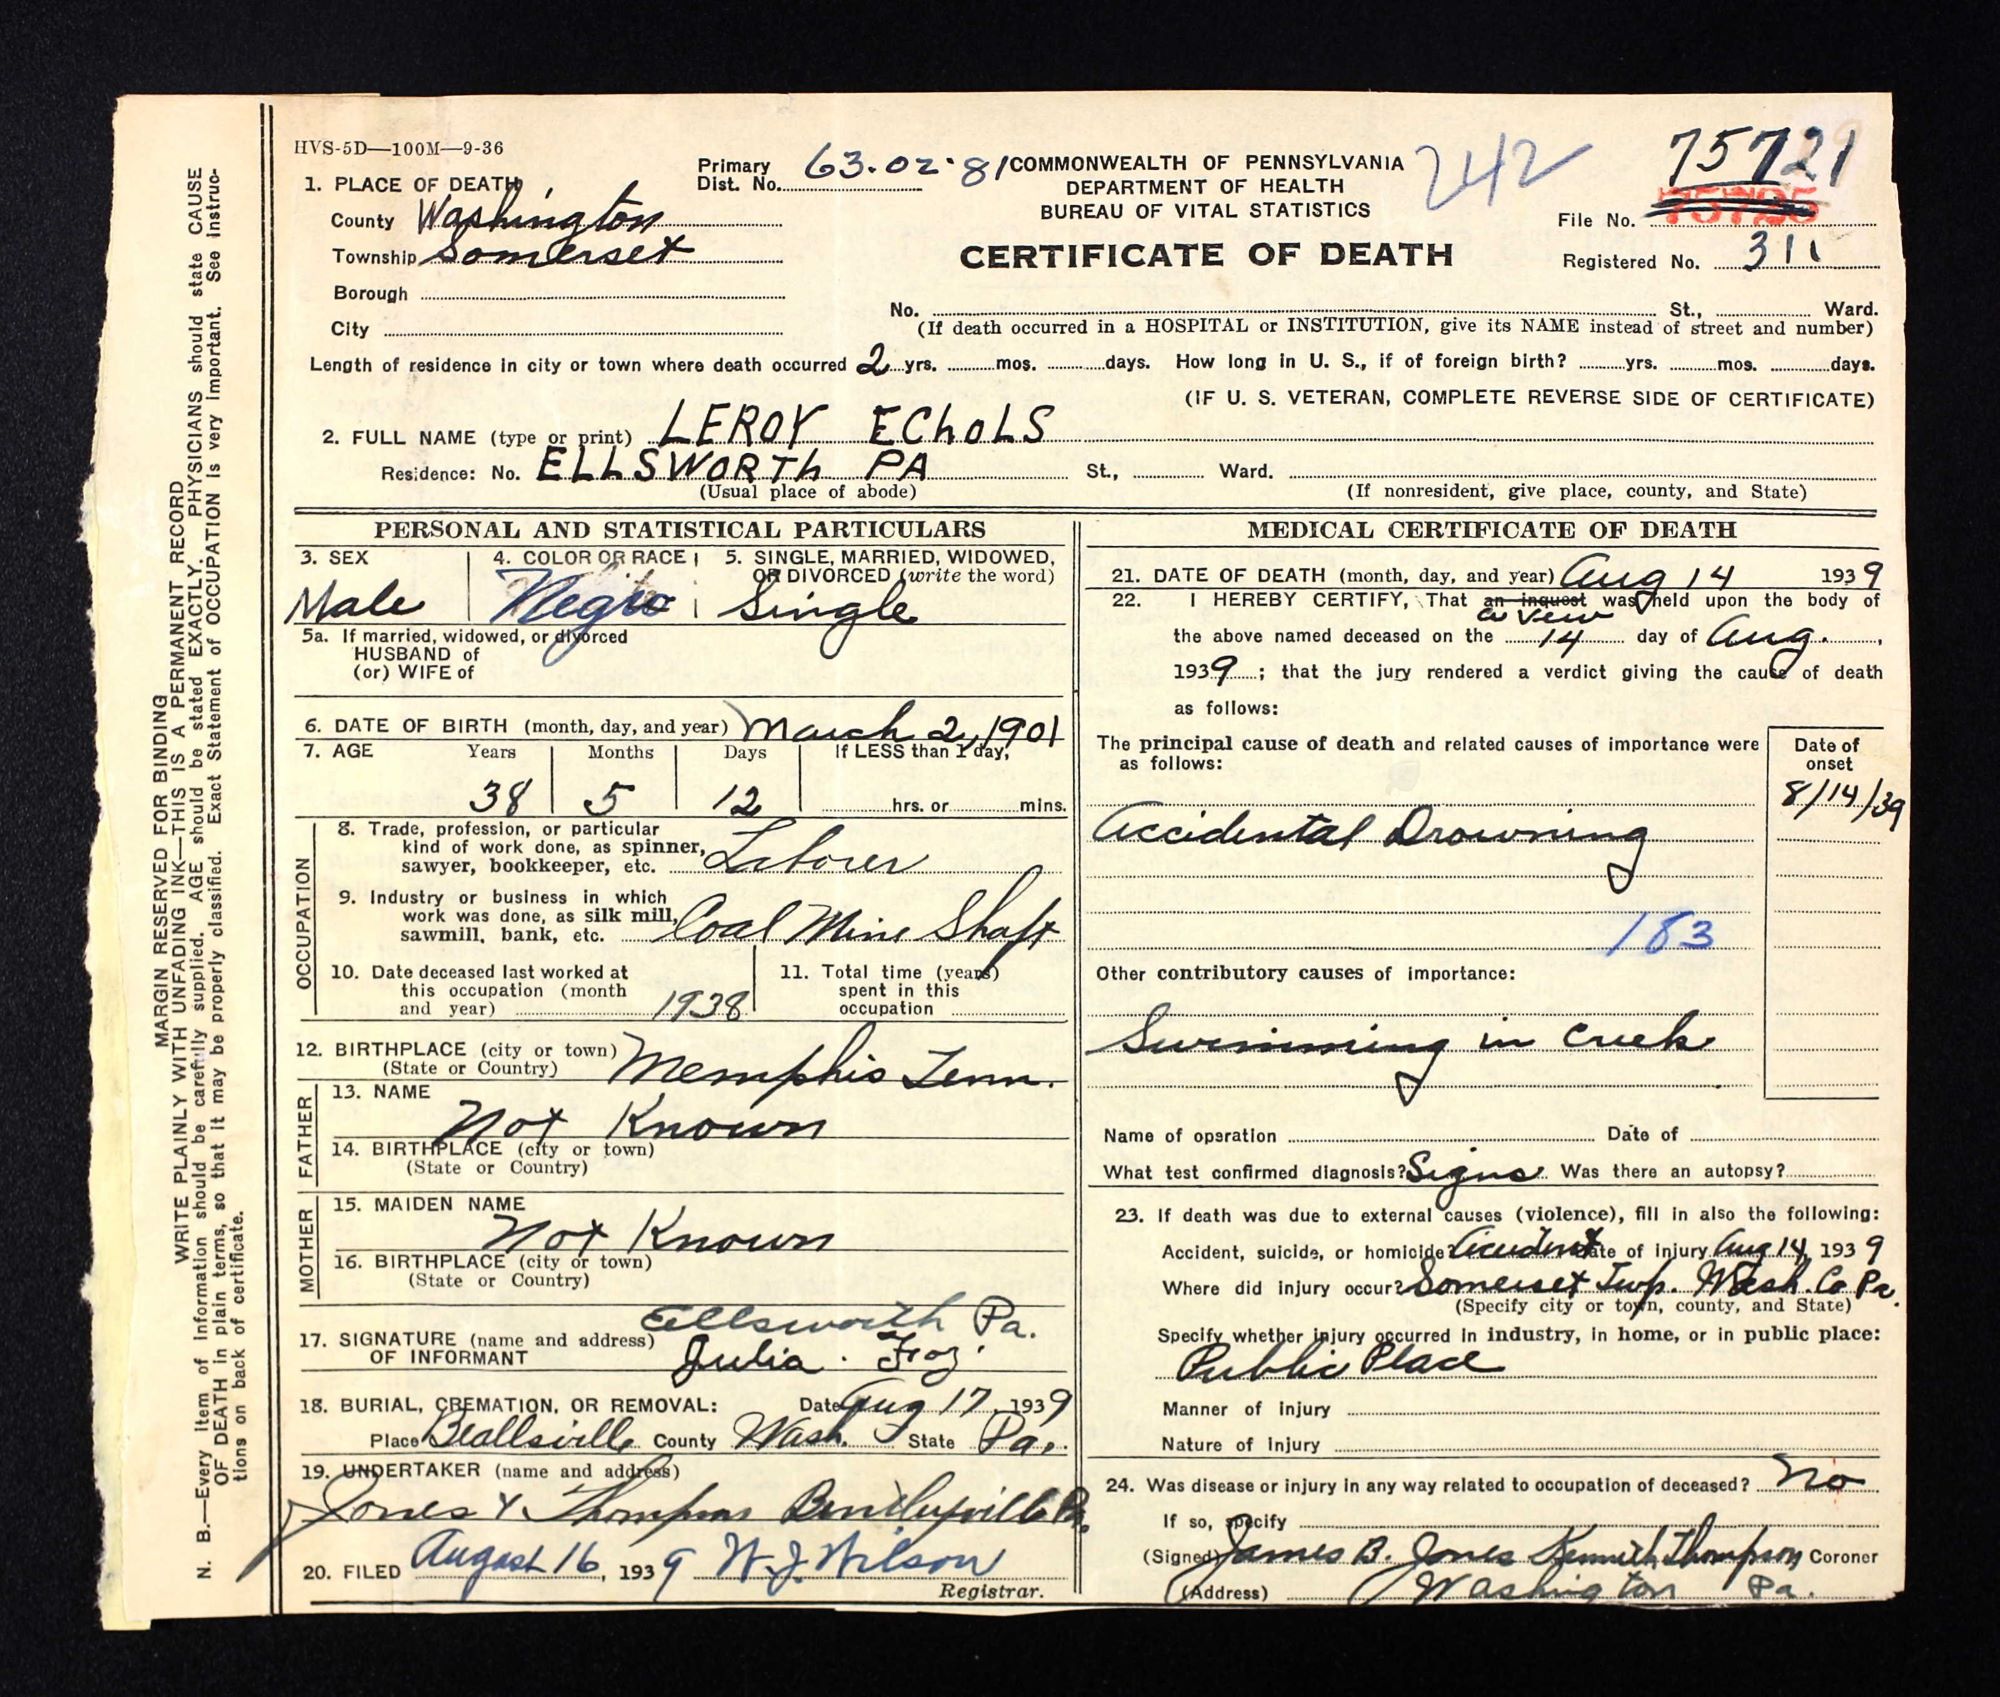 HVS-5D—100M—9-36
Primary Dist. No. 63.02.81
COMMONWEALTH OF PENNSYLVANIA
DEPARTMENT OF HEALTH
BUREAU OF VITAL STATISTICS
242
75721
File No. 75725
Registered No. 311
CERTIFICATE OF DEATH
1. PLACE OF DEATH
County Washington
Township Somerset
Borough
City
No. St., Ward.
(If death occurred in a HOSPITAL or INSTITUTION, give its NAME instead of street and number)
Length of residence in city or town where death occurred 2 yrs. mos. days. How long in U. S., if of foreign birth? yrs. mos. days.
(IF U. S. VETERAN, COMPLETE REVERSE SIDE OF CERTIFICATE)
2. FULL NAME (type or print) LEROY ECHOLS
Residence: No. ELLSWORTH PA St., Ward.
(Usual place of abode) (If nonresident, give place, county, and State)
PERSONAL AND STATISTICAL PARTICULARS
3. SEX
Male
4. COLOR OR RACE
Negro
5. SINGLE, MARRIED, WIDOWED,
OR DIVORCED (write the word)
Single
5a. If married, widowed, or divorced
HUSBAND of
(or) WIFE of
6. DATE OF BIRTH (month, day, and year) March 2, 1901
7. AGE Years Months Days If LESS than 1 day,
38 5 12 hrs. or mins.
OCCUPATION
8. Trade, profession, or particular
kind of work done, as spinner,
sawyer, bookkeeper, etc. Laborer
9. Industry or business in which
work was done, as silk mill,
sawmill, bank, etc. Coal Mine Shaft
10. Date deceased last worked at
this occupation (month
and year) 1938
11. Total time (years)
spent in this
occupation
12. BIRTHPLACE (city or town) Memphis Tenn.
(State or Country)
FATHER
13. NAME
Not Known
14. BIRTHPLACE (city or town)
(State or Country)
MOTHER
15. MAIDEN NAME
Not Known
16. BIRTHPLACE (city or town)
(State or Country)
Ellsworth Pa.
17. SIGNATURE (name and address)
OF INFORMANT Julia
18. BURIAL, CREMATION, OR REMOVAL: Date Aug 17, 1939
Place Beallsville County Wash. State Pa.
19. UNDERTAKER (name and address)
Jones & Thompson Bentleyville Pa.
20. FILED August 16, 1939 W. J. Wilson
Registrar.
MEDICAL CERTIFICATE OF DEATH
21. DATE OF DEATH (month, day, and year) Aug 14 1939
22. I HEREBY CERTIFY, That an inquest was held upon the body of
a view
the above named deceased on the 14 day of Aug.,
1939; that the jury rendered a verdict giving the cause of death
as follows:
The principal cause of death and related causes of importance were
as follows:
Date of
onset
8/14/39
Accidental Drowning
183
Other contributory causes of importance:
Swimming in Creek
Name of operation Date of
What test confirmed diagnosis? Signs Was there an autopsy?
23. If death was due to external causes (violence), fill in also the following:
Accident, suicide, or homicide? Accident Date of injury Aug 14, 1939
Where did injury occur? Somerset Twp. Wash. Co Pa.
(Specify city or town, county, and State)
Specify whether injury occurred in industry, in home, or in public place:
Public Place
Manner of injury
Nature of injury
24. Was disease or injury in any way related to occupation of deceased? No
If so, specify
(Signed) James B. Jones Kenneth Thompson Coroner
(Address) Washington Pa.
MARGIN RESERVED FOR BINDING
WRITE PLAINLY WITH UNFADING INK—THIS IS A PERMANENT RECORD
N. B.—Every item of information should be carefully supplied. AGE should be stated EXACTLY. PHYSICIANS should state CAUSE
OF DEATH in plain terms, so that it may be properly classified. Exact Statement of OCCUPATION is very important. See instruc-
tions on back of certificate.